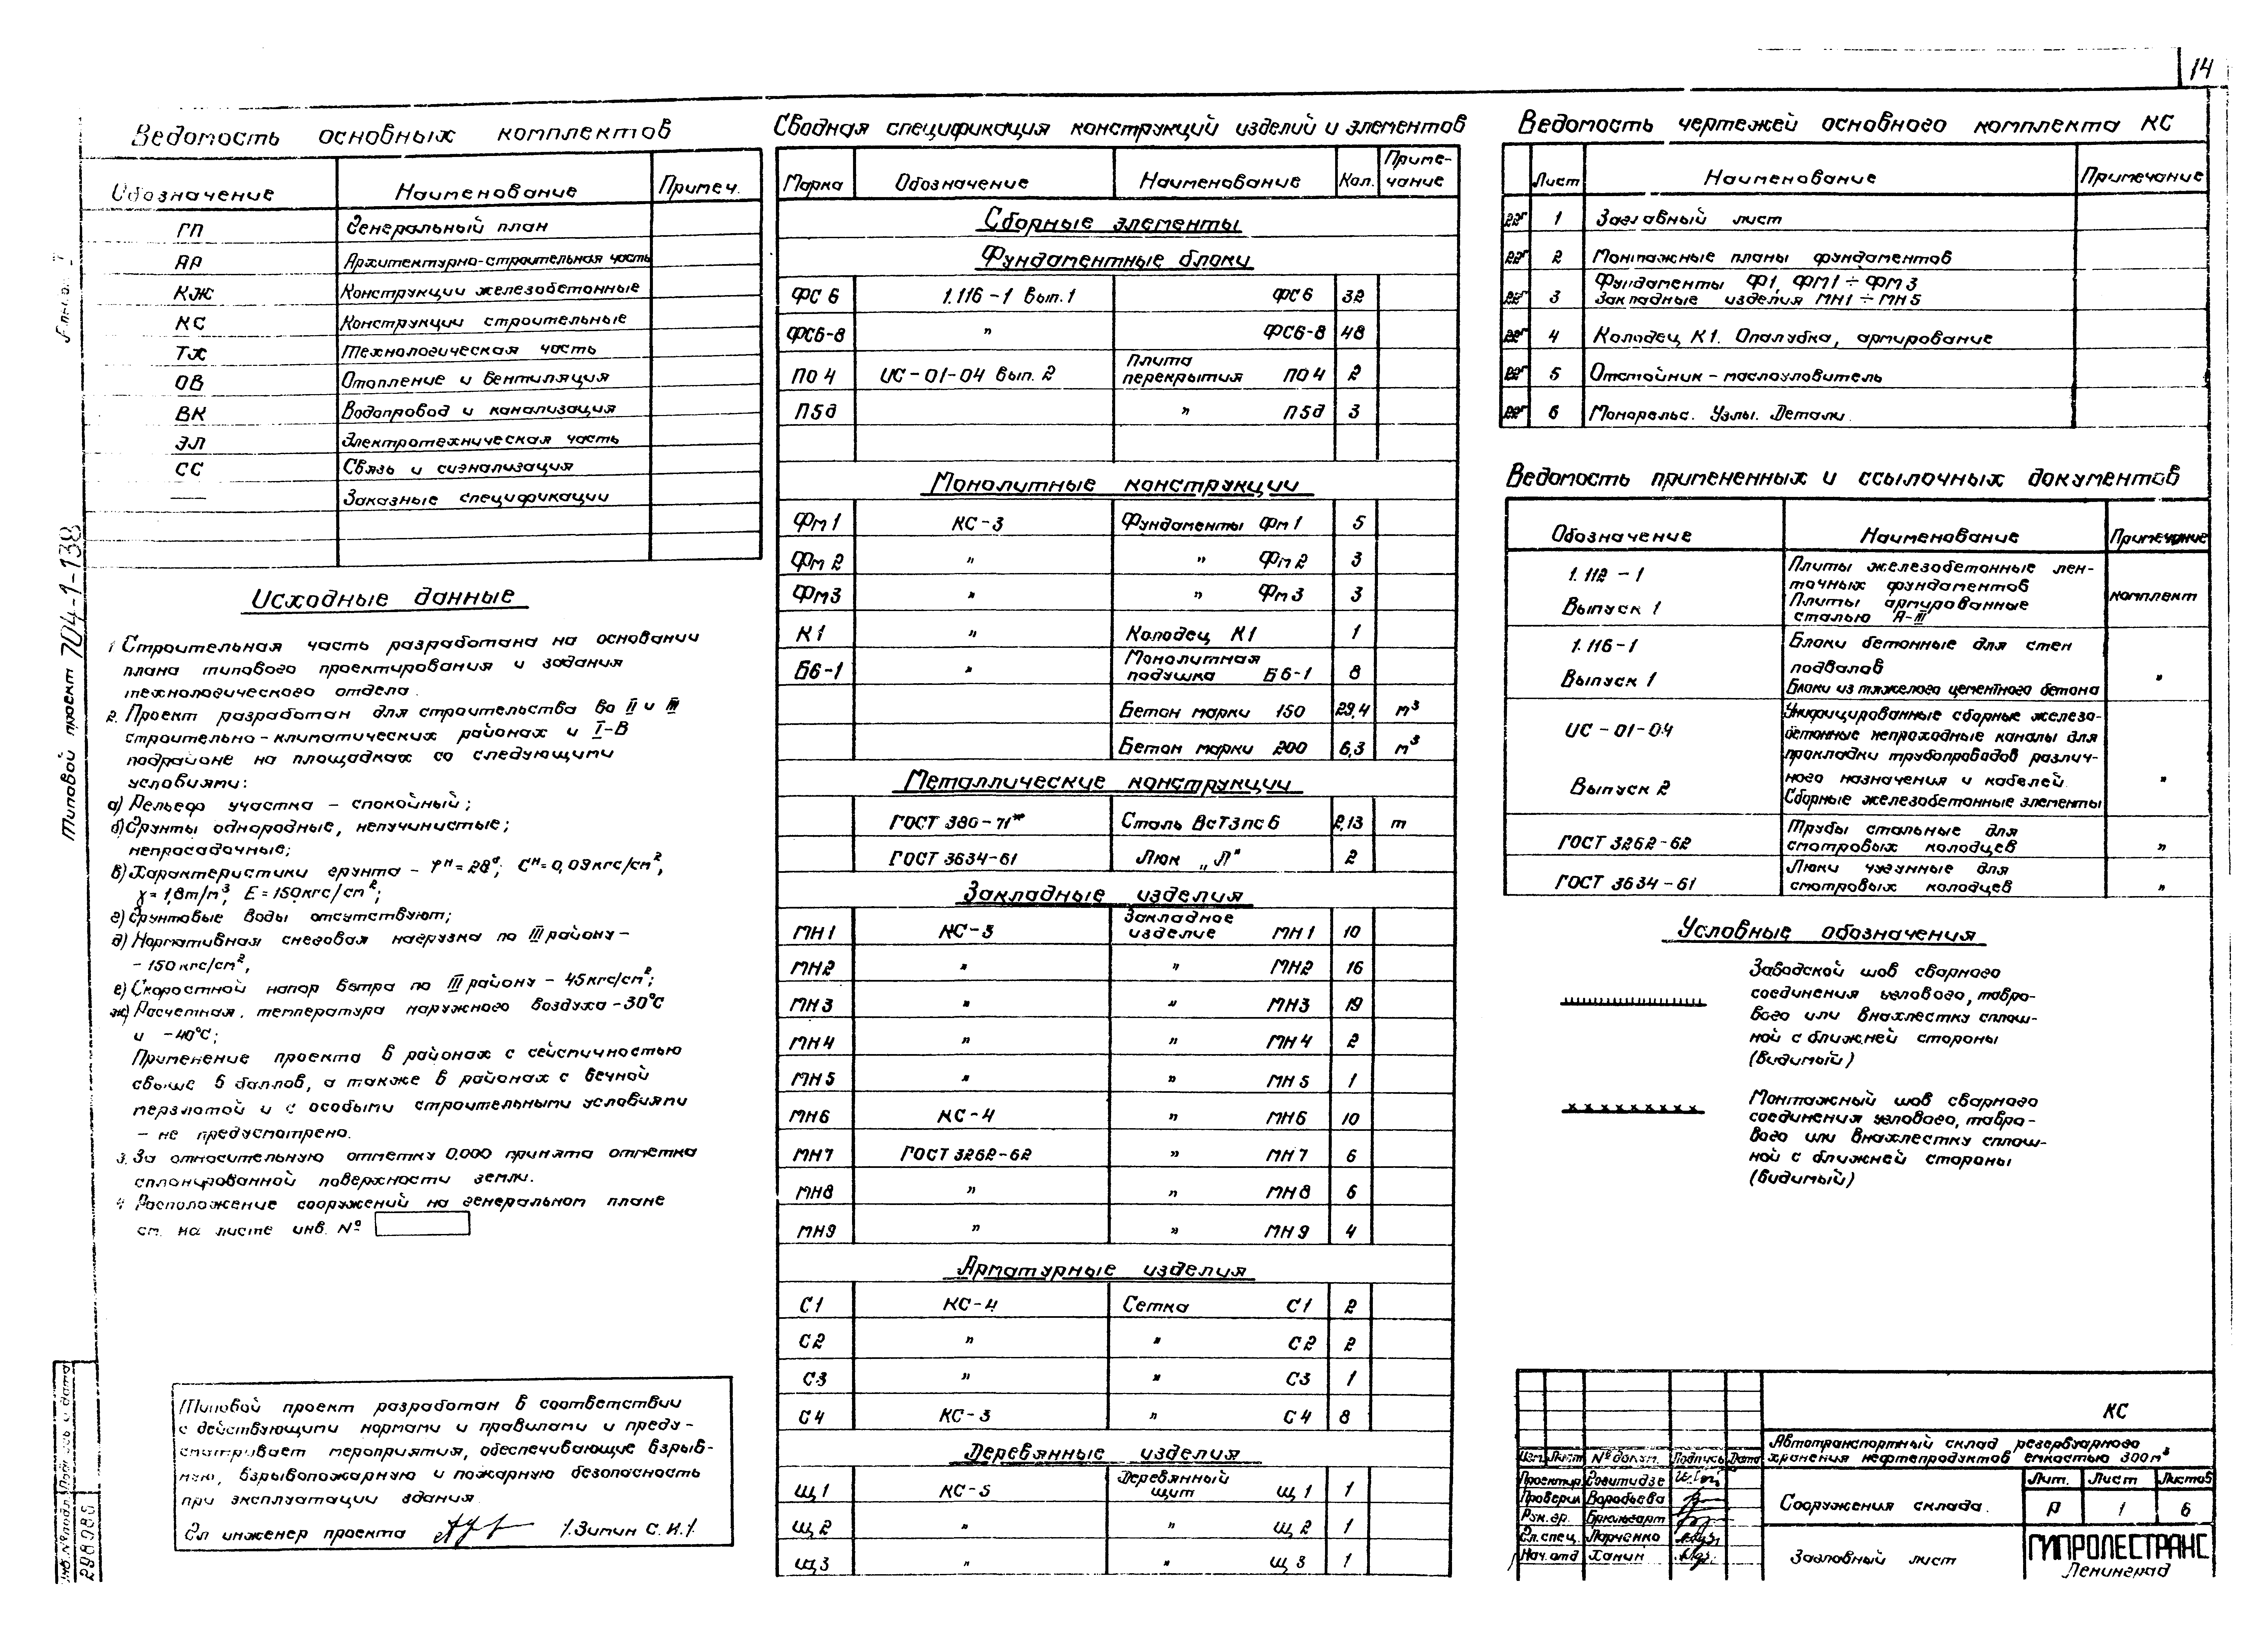 14
Ведомость основных комплектов
Обозначение Наименование Примеч.
ГП Генеральный план
АР Архитектурно-строительная часть
КЖ Конструкции железобетонные
КС Конструкции строительные
ТХ Технологическая часть
ОВ Отопление и вентиляция
ВК Водопровод и канализация
ЭЛ Электротехническая часть
СС Связь и сигнализация
— Заказные спецификации
Исходные данные
1 Строительная часть разработана на основании
плана типового проектирования и задания
технологического отдела.
2. Проект разработан для строительства во II и III
строительно-климатических районах и I-В
подрайоне на площадках со следующими
условиями:
а) Рельеф участка – спокойный;
б) Грунты однородные, непучинистые;
непросадочные;
в) Характеристики грунта – φн = 28°; Cн = 0,03 кгс/см²,
γ = 1,8т/м³, E = 150 кгс/см²;
г) Грунтовые воды отсутствуют;
д) Нормативная снеговая нагрузка по III району –
– 150 кгс/см²,
е) Скоростной напор ветра по III району – 45 кгс/см²;
ж) Расчетная температура наружного воздуха -30°С
и -40°С;
Применение проекта в районах с сейсмичностью
свыше 6 баллов, а также в районах с вечной
мерзлотой и с особыми строительными условиями
– не предусмотрено.
3. За относительную отметку 0,000 принята отметка
спланированной поверхности земли.
4 Расположение сооружений на генеральном плане
см. на листе инв. №
Типовой проект разработан в соответствии
с действующими нормами и правилами и преду-
сматривает мероприятия, обеспечивающие взрыв-
ную, взрывопожарную и пожарную безопасность
при эксплуатации здания
Гл инженер проекта /Зимин С.И./
Типовой проект 704-1-138
Инв.№подл. Подпись и дата
Сводная спецификация конструкций изделий и элементов
Марка Обозначение Наименование Кол. Приме-
чание
Сборные элементы
Фундаментные блоки
ФС6 1.116-1 Вып.1 ФС6 32
ФС6-8 " ФС6-8 48
Плита
ПО4 ИС-01-04 Вып. 2 перекрытия ПО4 2
П5д " П5д 3
Монолитные конструкции
Фм1 КС-3 Фундаменты Фм1 5
Фм2 " " Фм2 3
Фм3 " " Фм3 3
К1 " Колодец К1 1
Монолитная
Б6-1 " подушка Б6-1 8
Бетон марки 150 29,4 м³
Бетон марки 200 6,3 м³
Металлические конструкции
ГОСТ 380-71* Сталь ВСт3пс6 2,13 т
ГОСТ 3634-61 Люк „Л" 2
Закладные изделия
Закладное
МН1 КС-3 изделие МН1 10
МН2 " " МН2 16
МН3 " " МН3 19
МН4 " " МН4 2
МН5 " " МН5 1
МН6 КС-4 " МН6 10
МН7 ГОСТ 3262-62 " МН7 6
МН8 " " МН8 6
МН9 " " МН9 4
Арматурные изделия
С1 КС-4 Сетка С1 2
С2 " " С2 2
С3 " " С3 1
С4 КС-3 " С4 8
Деревянные изделия
Деревянный
Щ1 КС-5 щит Щ1 1
Щ2 " " Щ2 1
Щ3 " " Щ3 1
Ведомость чертежей основного комплекта КС
Лист Наименование Примечание
1 Заглавный лист
2 Монтажные планы фундаментов
Фундаменты Ф1, ФМ1 ÷ ФМ3
3 Закладные изделия МН1 ÷ МН5
4 Колодец К1. Опалубка, армирование
5 Отстойник-маслоуловитель
6 Монорельс. Узлы. Детали.
Ведомость примененных и ссылочных документов
Обозначение Наименование Примечание
1.112-1 Плиты железобетонные лен-
точных фундаментов
Выпуск 1 Плиты армированные комплект
сталью А-III
1.116-1 Блоки бетонные для стен
подвалов
Выпуск 1 Блоки из тяжелого цементного бетона "
Унифицированные сборные железо-
ИС-01-04 бетонные непроходные каналы для
прокладки трубопроводов различ-
Выпуск 2 ного назначения и кабелей. "
Сборные железобетонные элементы
Трубы стальные для
ГОСТ 3262-62 смотровых колодцев "
Люки чугунные для
ГОСТ 3634-61 смотровых колодцев "
Условные обозначения
Заводской шов сварного
соединения углового, тавро-
вого или внахлестку сплош-
ной с ближней стороны
(видимый)
Монтажный шов сварного
соединения углового, тавро-
вого или внахлестку сплош-
ной с ближней стороны
(видимый)
КС
Автотранспортный склад резервуарного
хранения нефтепродуктов емкостью 300м³
Изм. Лист № докум. Подпись Дата
Проектир
Проверил Воробьева
Рук.гр.
Гл.спец. Марченко
Нач.отд Ханин
Сооружения склада.
Лит. Лист Листов
Р 1 6
Заглавный лист
ГИПРОЛЕСТРАНС
Ленинград